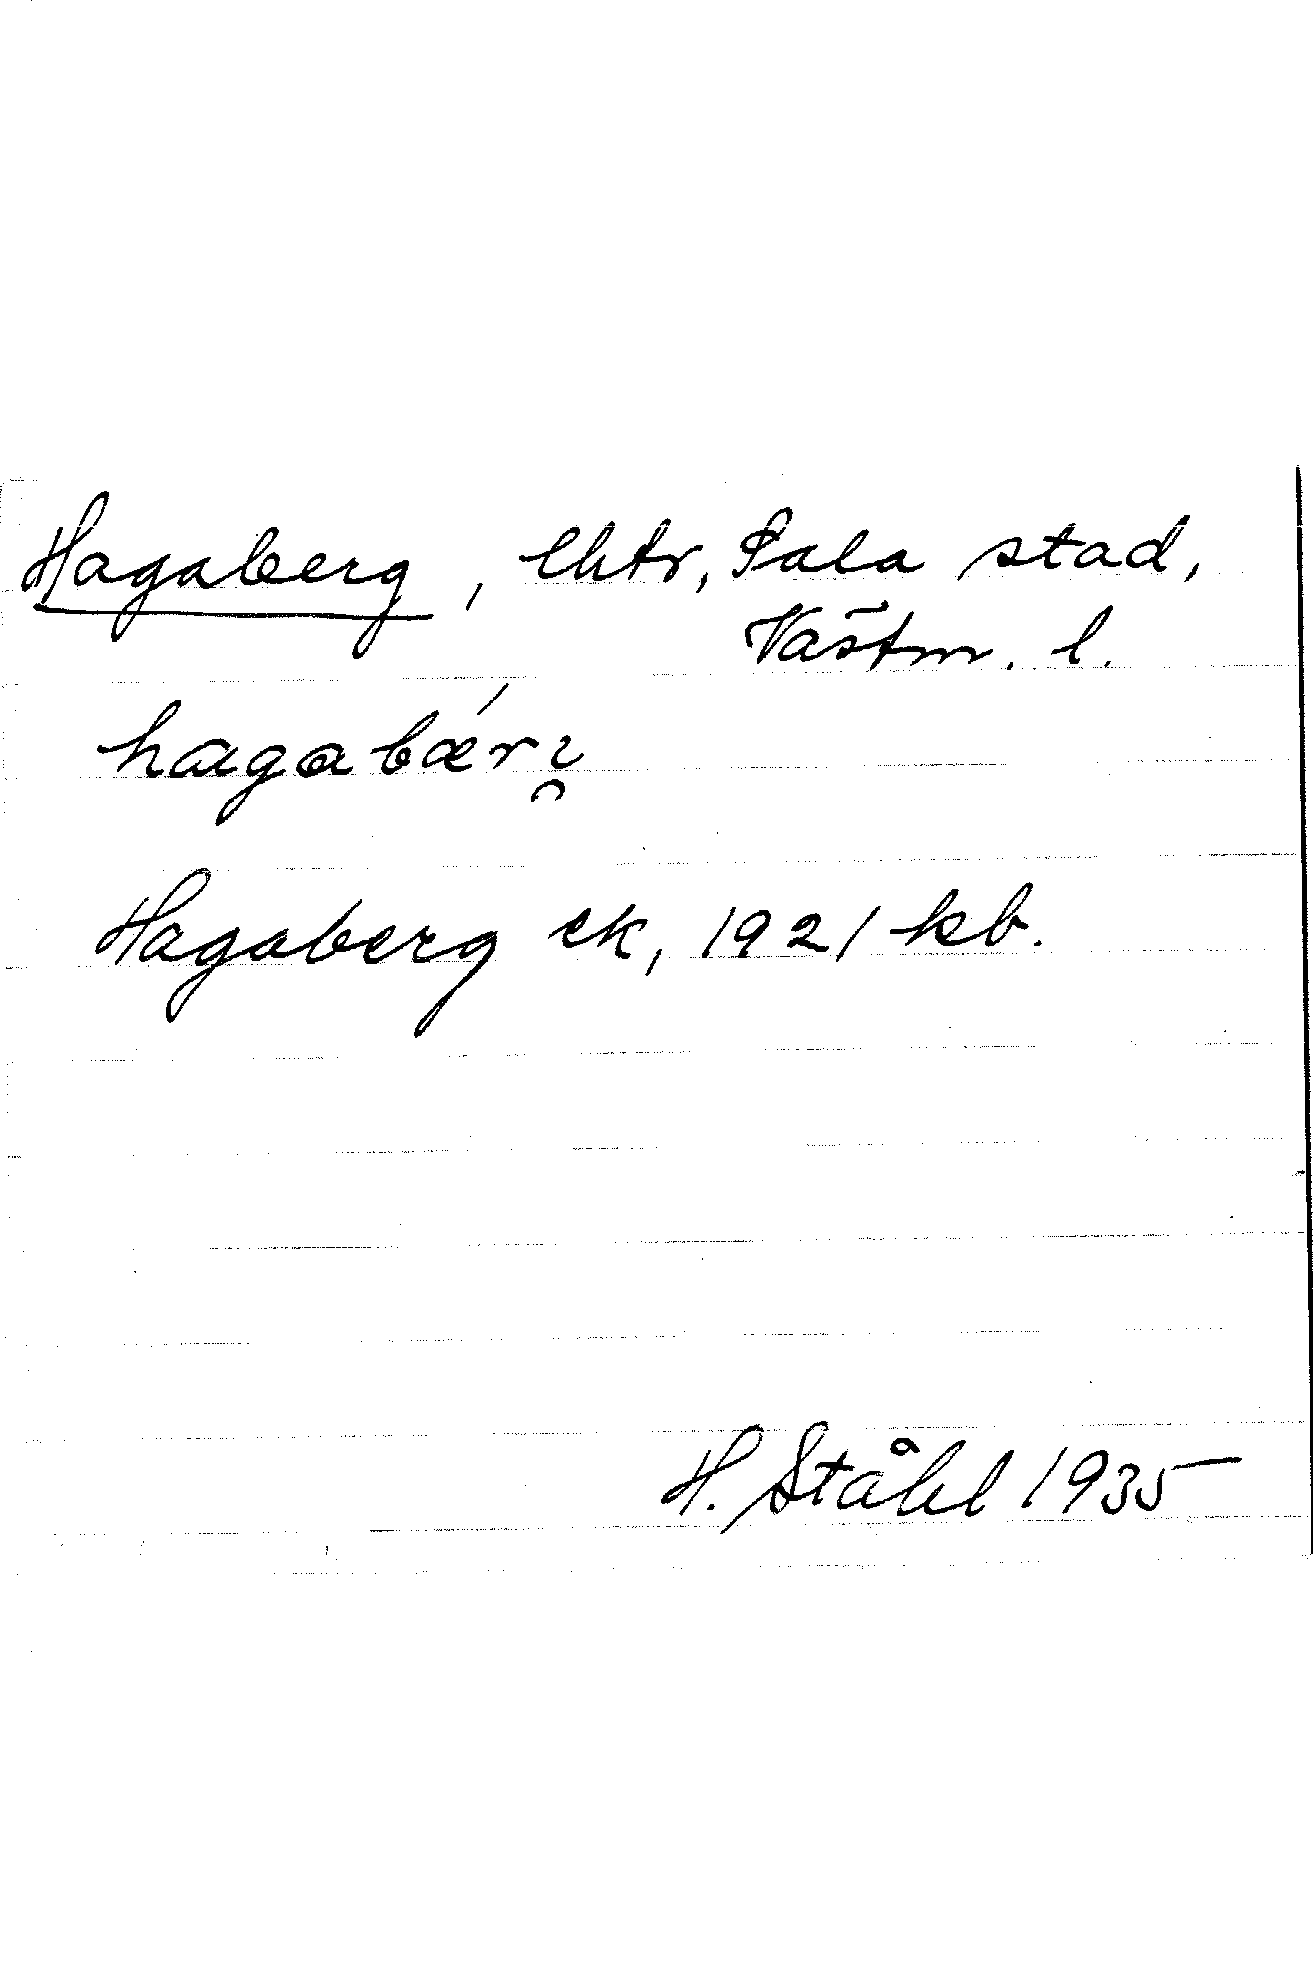 Hagaberg, lhtr, Sala stad,
Västm. l.
hagabǽri̯
Hagaberg ek, 1921 kb.
H. Ståhl 1935